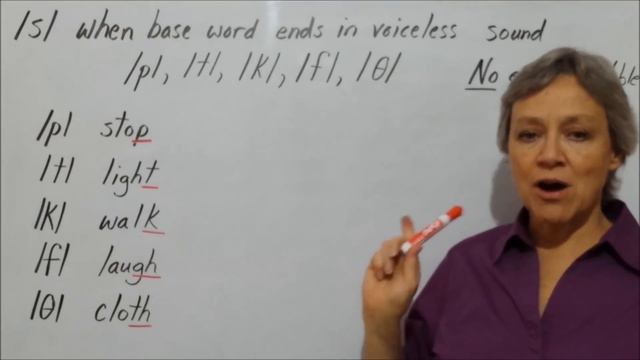 /s/ when base word ends in voiceless sound
/p/, /t/, /k/, /f/, /θ/ No
/p/ stop
/t/ light
/k/ walk
/f/ laugh
/θ/ cloth